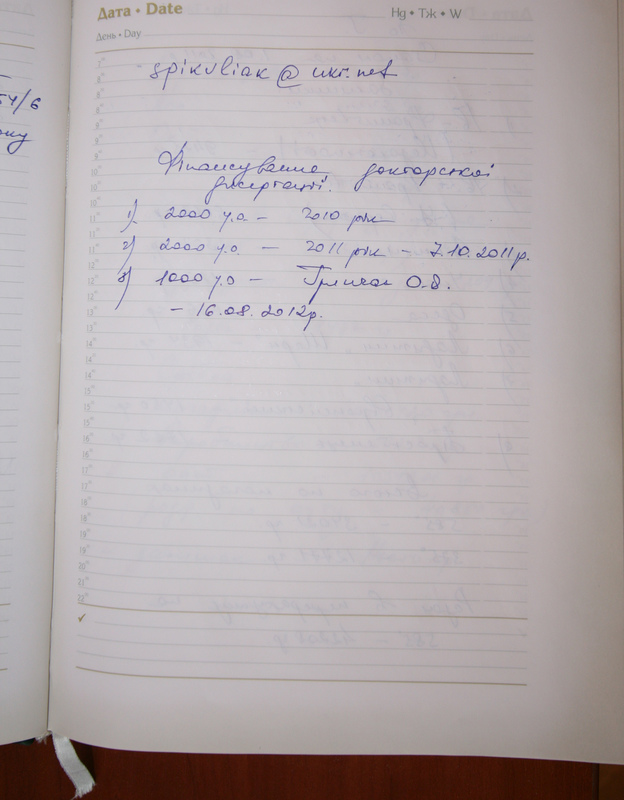 Дата • Date
Нд • Тж • W
День • Day
54/6
spikuliak@ukr.net
Фінансування докторської
дисертації.
1) 2000 у.о. – 2010 рік
2) 2000 у.о. – 2011 рік – 7.10.2011р.
3) 1000 у.о – О.В.
– 16.08.2012р.